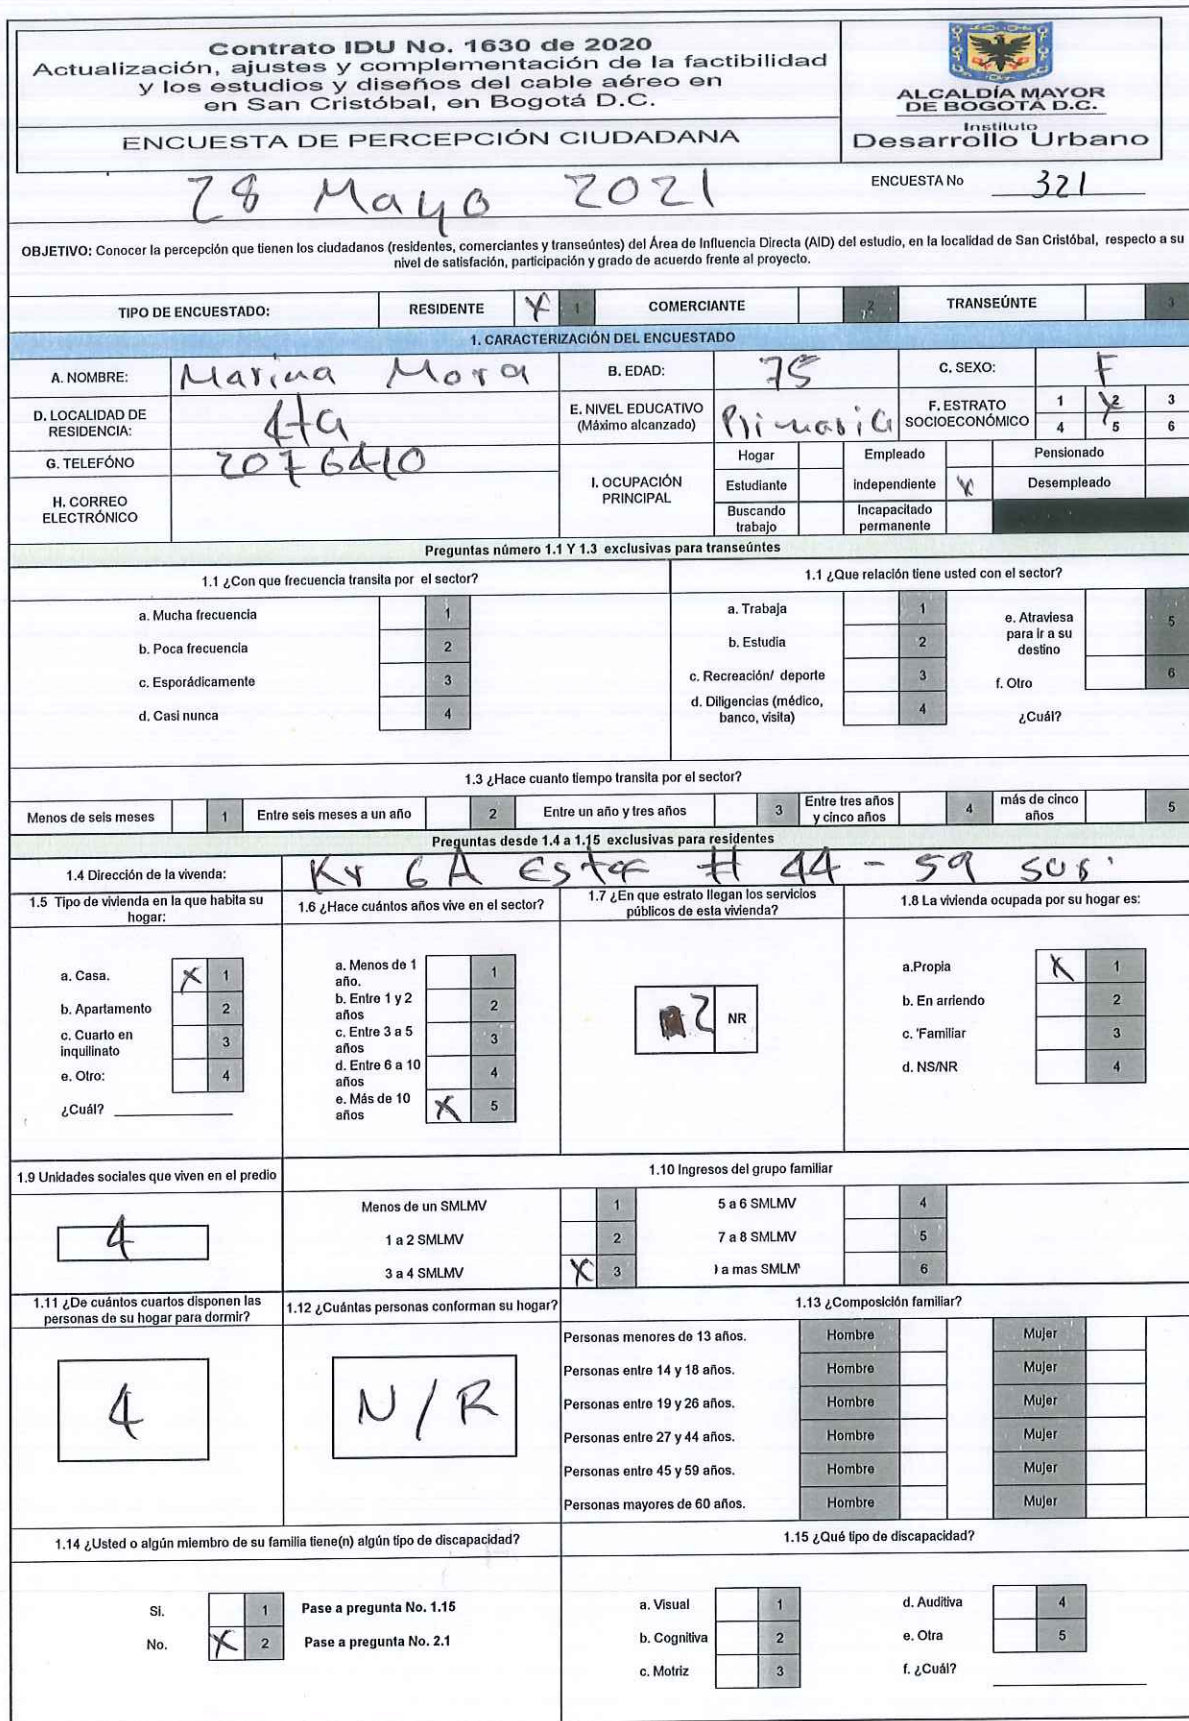 Contrato IDU No. 1630 de 2020
Actualización, ajustes y complementación de la factibilidad
y los estudios y diseños del cable aéreo en
en San Cristóbal, en Bogotá D.C.
ENCUESTA DE PERCEPCIÓN CIUDADANA
ALCALDÍA MAYOR
DE BOGOTÁ D.C.
Instituto
Desarrollo Urbano
28 Mayo 2021
ENCUESTA No 321
OBJETIVO: Conocer la percepción que tienen los ciudadanos (residentes, comerciantes y transeúntes) del Área de Influencia Directa (AID) del estudio, en la localidad de San Cristóbal, respecto a su
nivel de satisfacción, participación y grado de acuerdo frente al proyecto.
TIPO DE ENCUESTADO: RESIDENTE X 1 COMERCIANTE 2 TRANSEÚNTE 3
1. CARACTERIZACIÓN DEL ENCUESTADO
A. NOMBRE: Marina Mora B. EDAD: 75 C. SEXO: F
D. LOCALIDAD DE RESIDENCIA: 4ta E. NIVEL EDUCATIVO (Máximo alcanzado) Primaria F. ESTRATO SOCIOECONÓMICO 1 X2 3
4 5 6
G. TELEFÓNO 2076410
H. CORREO ELECTRÓNICO
I. OCUPACIÓN PRINCIPAL
Hogar Empleado Pensionado
Estudiante independiente X Desempleado
Buscando trabajo Incapacitado permanente
Preguntas número 1.1 Y 1.3 exclusivas para transeúntes
1.1 ¿Con que frecuencia transita por el sector?
a. Mucha frecuencia 1
b. Poca frecuencia 2
c. Esporádicamente 3
d. Casi nunca 4
1.1 ¿Que relación tiene usted con el sector?
a. Trabaja 1
b. Estudia 2
c. Recreación/ deporte 3
d. Diligencias (médico, banco, visita) 4
e. Atraviesa para ir a su destino 5
f. Otro 6
¿Cuál?
1.3 ¿Hace cuanto tiempo transita por el sector?
Menos de seis meses 1 Entre seis meses a un año 2 Entre un año y tres años 3 Entre tres años y cinco años 4 más de cinco años 5
Preguntas desde 1.4 a 1.15 exclusivas para residentes
1.4 Dirección de la vivenda: Kr 6A Este # 44 - 59 sur
1.5 Tipo de vivienda en la que habita su hogar:
a. Casa. X 1
b. Apartamento 2
c. Cuarto en inquilinato 3
e. Otro: 4
¿Cuál?
1.6 ¿Hace cuántos años vive en el sector?
a. Menos de 1 año. 1
b. Entre 1 y 2 años 2
c. Entre 3 a 5 años 3
d. Entre 6 a 10 años 4
e. Más de 10 años X 5
1.7 ¿En que estrato llegan los servicios públicos de esta vivienda?
2 NR
1.8 La vivienda ocupada por su hogar es:
a.Propia X 1
b. En arriendo 2
c. 'Familiar 3
d. NS/NR 4
1.9 Unidades sociales que viven en el predio
4
1.10 Ingresos del grupo familiar
Menos de un SMLMV 1 5 a 6 SMLMV 4
1 a 2 SMLMV 2 7 a 8 SMLMV 5
3 a 4 SMLMV X 3 a mas SMLM 6
1.11 ¿De cuántos cuartos disponen las personas de su hogar para dormir?
4
1.12 ¿Cuántas personas conforman su hogar?
N/R
1.13 ¿Composición familiar?
Personas menores de 13 años. Hombre Mujer
Personas entre 14 y 18 años. Hombre Mujer
Personas entre 19 y 26 años. Hombre Mujer
Personas entre 27 y 44 años. Hombre Mujer
Personas entre 45 y 59 años. Hombre Mujer
Personas mayores de 60 años. Hombre Mujer
1.14 ¿Usted o algún miembro de su familia tiene(n) algún tipo de discapacidad?
Si. 1 Pase a pregunta No. 1.15
No. X 2 Pase a pregunta No. 2.1
1.15 ¿Qué tipo de discapacidad?
a. Visual 1 d. Auditiva 4
b. Cognitiva 2 e. Otra 5
c. Motriz 3 f. ¿Cuál?